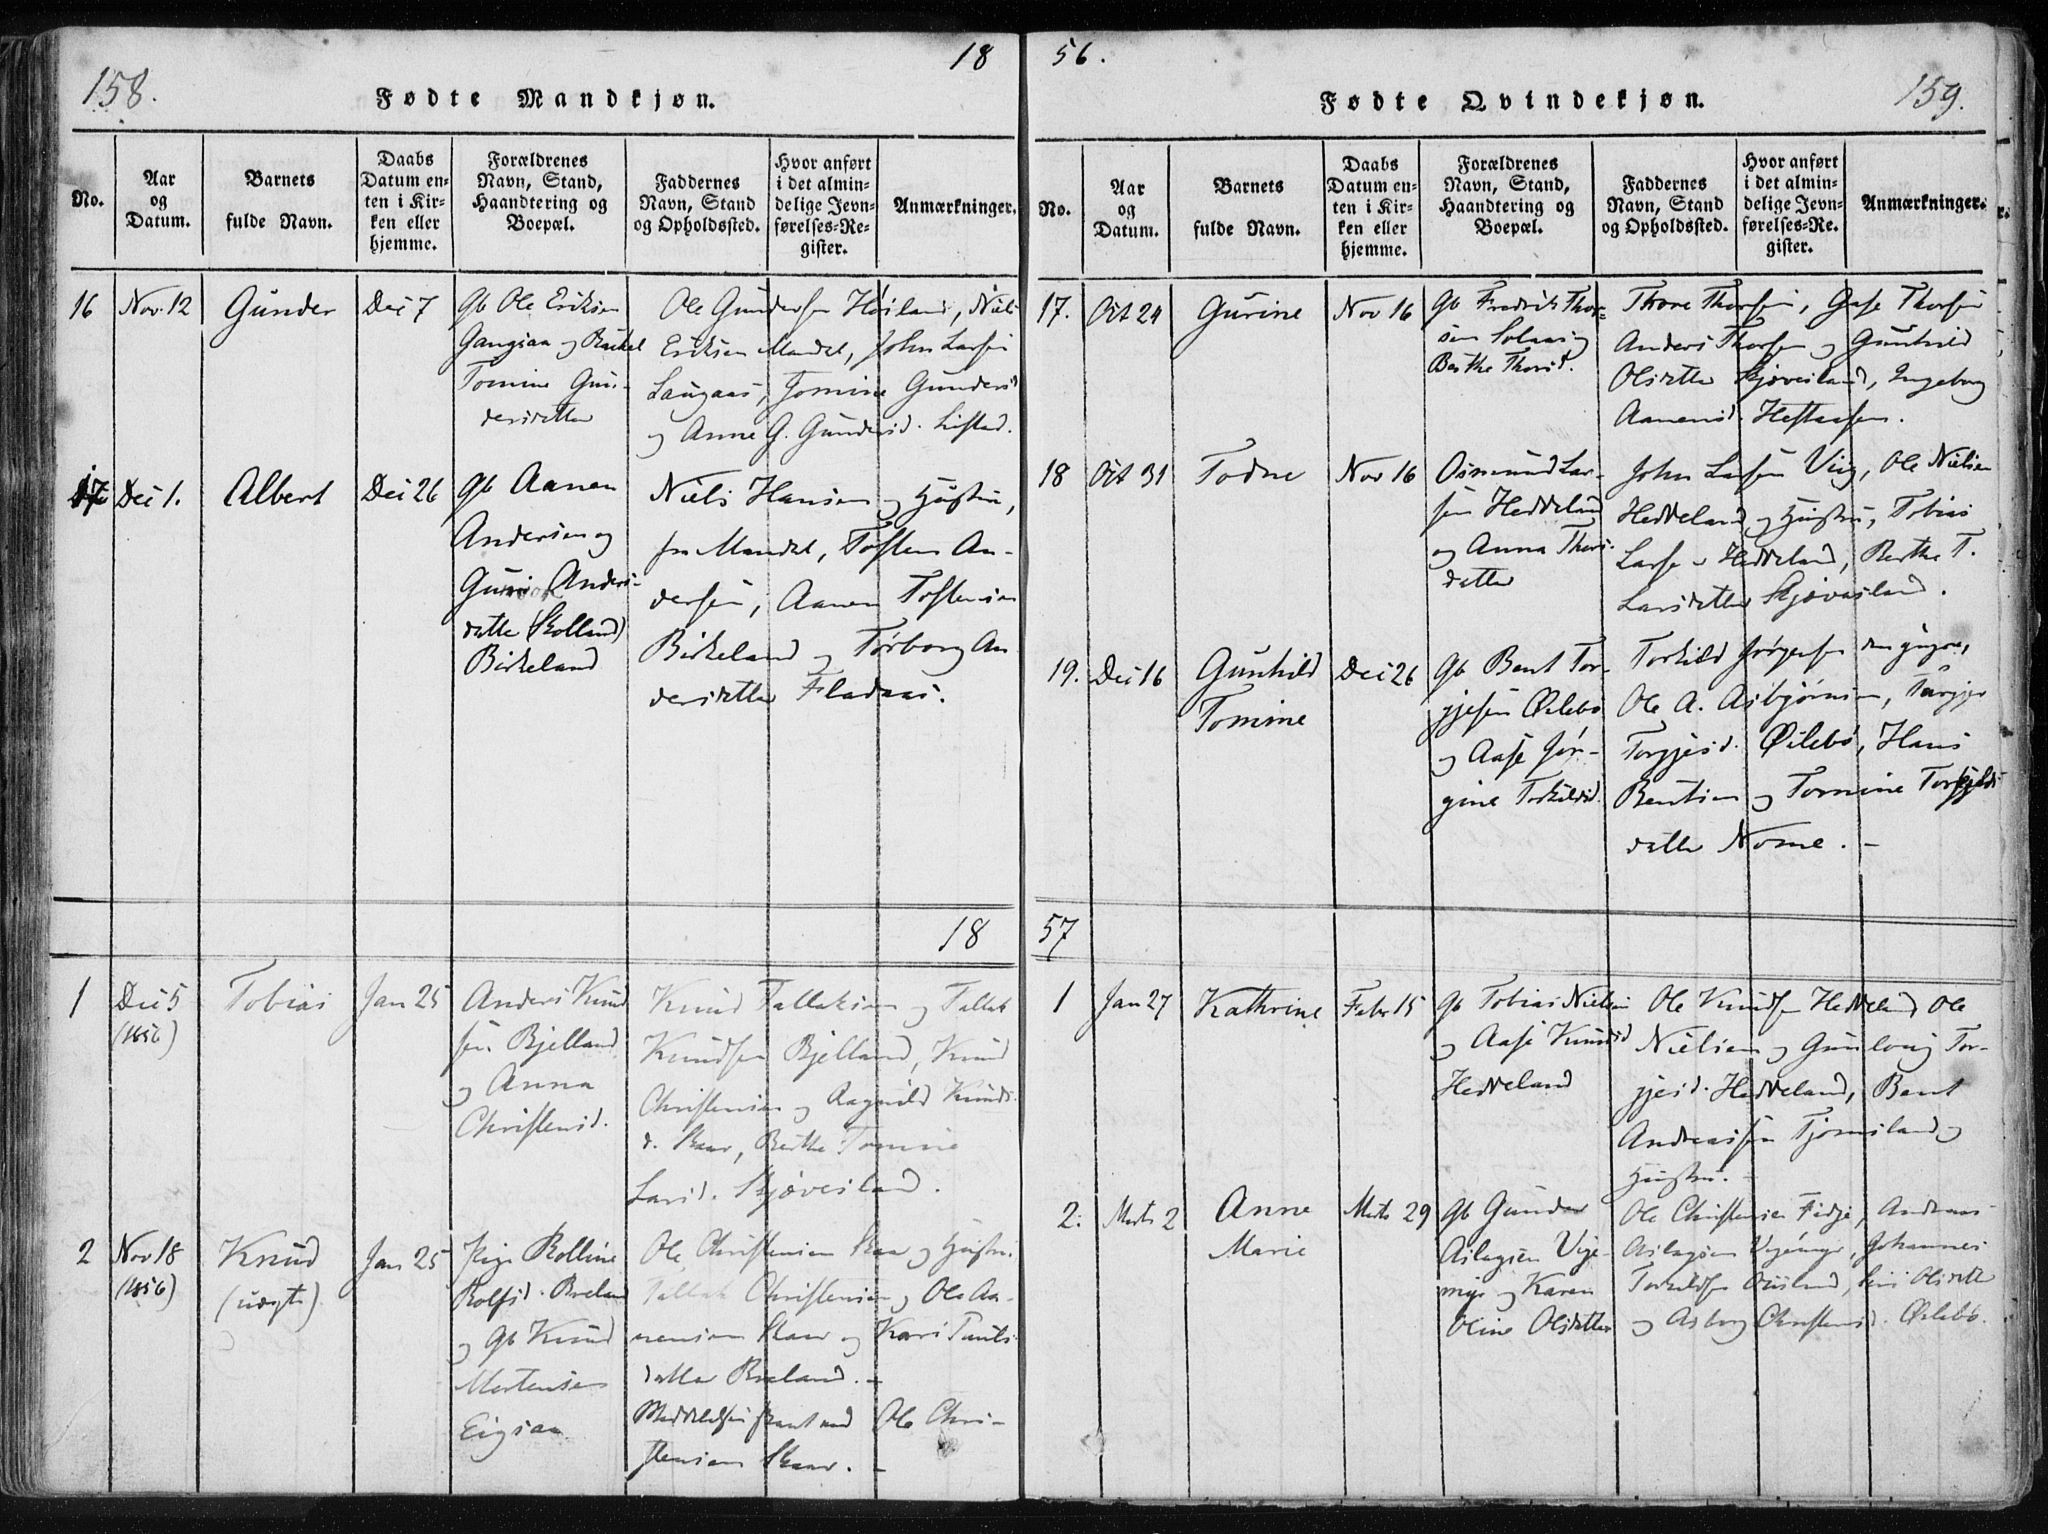 158.
18
Fødte Mandkjøn.
No.
Aar
og
Datum.
Barnets
fulde Navn.
Daabs
Datum en-
ten i Kir-
ken eller
hjemme.
Forældrenes
Navn, Stand,
Haandtering og
Boepæl.
Faddernes
Navn, Stand
og Opholdssted.
Hvor anført
i det almin-
delige Jevn-
førelses-Re-
gister.
Anmærkninger.
16
Nov. 12
Gunder
Dec 7
Gb Ole Eriksen
og Rachel
Tomine Gun-
dersdatter
Ole Gundersen Høiland, Niels
Eriksen Mandal, John Larsen
Laugaas, Tomine Gundersd
og Anne G. Gundersd.
17
Dec 1.
Albert
Dec 26
Gb Aanen
Andersen og
Anders-
datter (Skolland)
Birkeland
Niels Hansen og Hustru,
fra Mandal, Tosten An-
dersen, Aanen Tostensen
Birkeland og Torborg An
dersdatter Fladaas.
18
1
Dec 5
(1856)
Tobias
Jan 25
Anders Knud
sen Bjelland
og Anna
Christensd.
Knud Tallaksen og Tallak
Knudsen Bjelland, Knud
Christensen og Ragnild Knuds
d. Skaar, Berthe Tomine
Larsd. Skjævesland.
2
Nov 18
(1856)
Knud
(uægte)
Jan 25
Pige Rolline
Rolfsd. Breland
og Gb Knud
Mortensen
Eigsaa
Ole Christensen Skaar og Hustru.
Tallak Christensen og Ole Aa-
nensen Skaar og Kari Pauls
datter Breland. -
Ole Chri-
stensen Skaar. -
56.
159.
Fødte Qvindekjøn.
No.
Aar
og
Datum.
Barnets
fulde Navn.
Daabs
Datum en-
ten i Kir-
ken eller
hjemme.
Forældrenes
Navn, Stand,
Haandtering og
Boepæl.
Faddernes
Navn, Stand
og Opholdssted.
Hvor anført
i det almin-
delige Jevn-
førelses-Re-
gister.
Anmærkninger.
17.
Oct 24
Gurine
Nov 16
Gb Fredrik Thor-
sen Solaas og
Berthe Thorsd.
Thore Thorsen, Thorsen
Anders Thorsen og Gunhild
Olsdatter Skjævesland, Ingeborg
Aanensd. Heftaasen.
18
Oct 31
Todne
Nov 16
Osmund Lar-
sen Heddeland
og Anna Thors-
datter
John Larsen Vig, Ole Nielsen
Heddeland og Hustru, Tobias
Larsen Heddeland, Berthe T.
Larsdatter Skjævesland.
19.
Dec 16
Gunhild
Tomine
Dec 26
Gb Bent Tor-
gjesen Øslebø
og Aase Jør-
gine Torkildsd.
Torkild Jørgensen
Ole A. Asbjørnsen,
Torgjesd. Øslebø, Hans
Bentsen og Tomine Torkjelds-
datter Nome. -
57
1
Jan 27
Kathrine
Febr 15
Gb Tobias Nielsen
og Aase Knudsd
Heddeland
Ole Knudsen Heddeland Ole
Nielsen og Gunloug Tor-
gjesd. Heddeland, Bent
Andreassen Tjomsland og
Hustru. -
2.
Marts 2
Anne
Marie
Marts 29
Gb Gunder
Aslagsen
og Karen
Oline Olsdatter
Ole Christensen Fidje, Andreas
Aslagsen Johannes
Torkildsen Olsdatter
og Asborg Christensd. Øslebø.